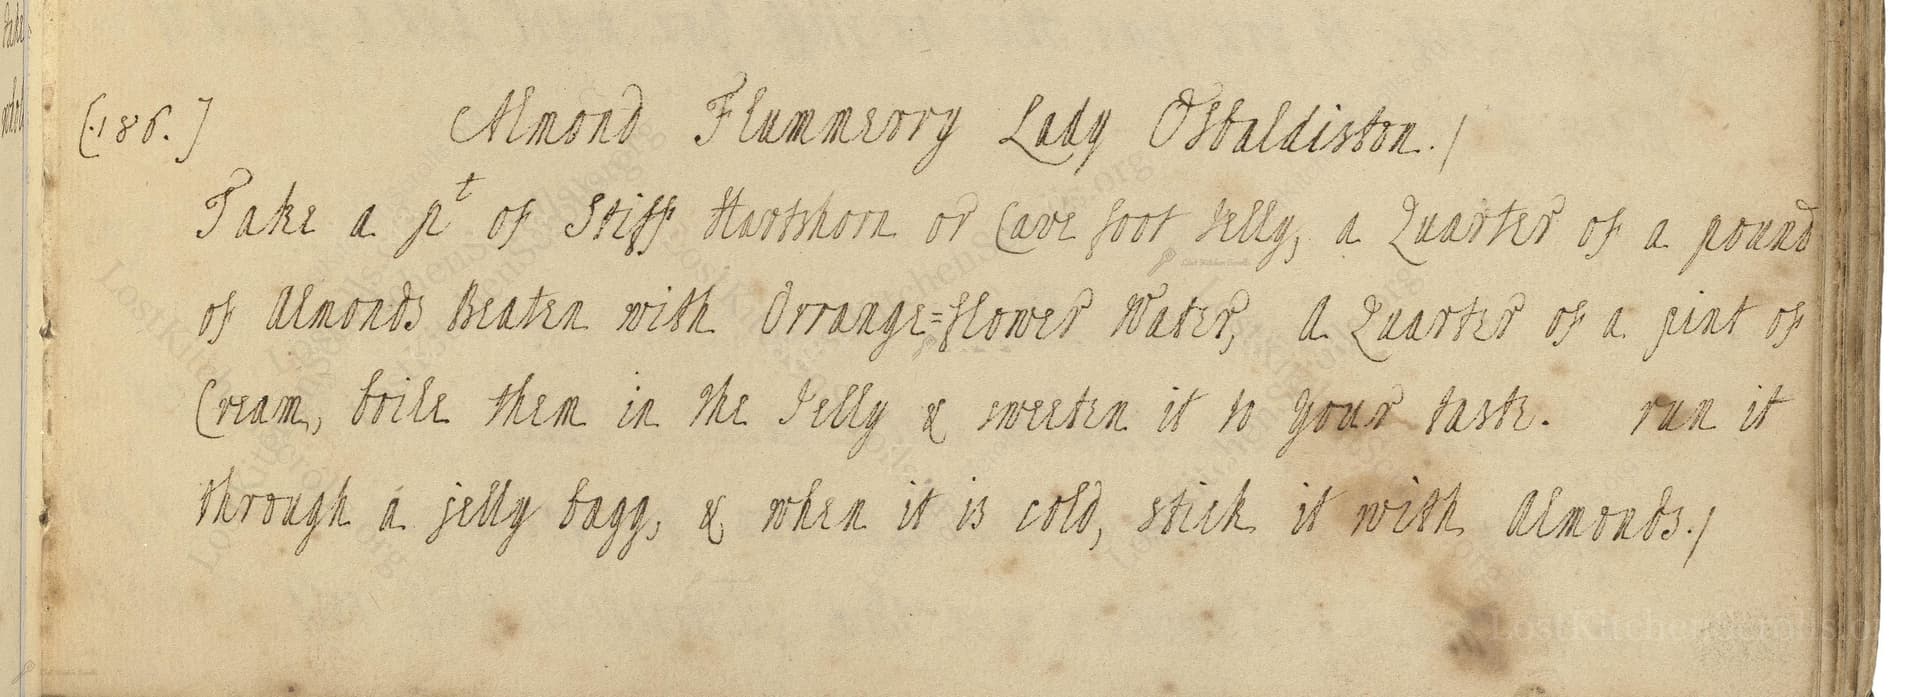 take
whol
[.186.] Almond Flummerry Lady Osbaldiston./
Take a pt of Stiff Hartshorn or Cave foot Jelly, a Quarter of a pound
of Almonds Beaten with Orrange=flower Water, A Quarter of a pint of
Cream, boile them in the Jelly & sweeten it to your taste. run it
through a jelly bagg, & when it is cold, stick it with Almonds./
LostKitchenScrolls.org